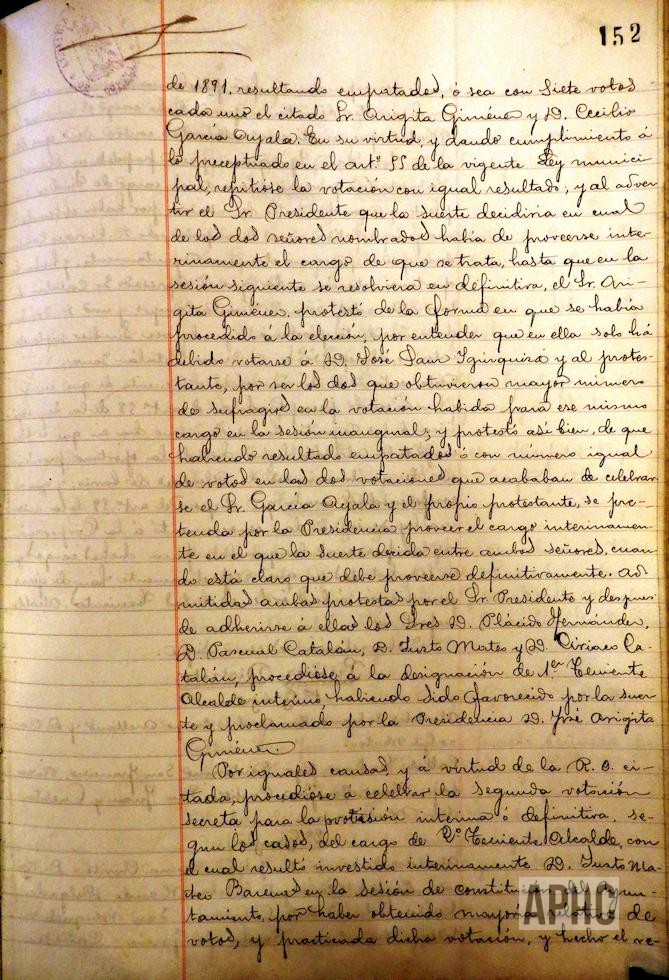 152
de 1891, resultando empatados, ó sea con siete votos
cada uno el citado Sr. Arigita Giménez y D. Cecilio
García Ayala. En su virtud, y dando cumplimiento á
lo preceptuado en el artº 55 de la vigente Ley munici-
pal, repitióse la votación con igual resultado; y al adver-
tir el Sr. Presidente que la suerte decidiria en cual
de los dos señores nombrados habia de proveerse inte-
rinamente el cargo de que se trata, hasta que en la
sesión siguiente se resolviera en definitiva, el Sr. Ari-
gita Giménez, protestó de la forma en que se había
procedido á la elección, por entender que en ella solo há
debido votarse á D. José Sanz y al protes-
tante, por ser los dos que obtuvieron mayor número
de sufragios en la votación habida para ese mismo
cargo en la sesión inaugural; y protestó así bien, de que
habiendo resultado empatados ó con número igual
de votos en las dos votaciones que acababan de celebrar-
se el Sr. García Ayala y el propio protestante, se pre-
tenda por la Presidencia proveer el cargo interinamen-
te en el que la suerte decida entre ambos señores, cuan-
do está claro que debe proveerse definitivamente. Ad-
mitidas ambas protestas por el Sr. Presidente y despues
de adherirse á ellas los Sres D. Plácido Fernández,
D. Pascual Catalán, D. Justo Mateo y D. Ciriaco Ca-
talán, procedióse á la designación de 1er Teniente
Alcalde interino, habiendo sido favorecido por la suer-
te y proclamado por la Presidencia D. José Arigita
Giménez.
Por iguales causas, y á virtud de la R. O. ci-
tada, procedióse á celebrar la segunda votación
secreta para la provisión interina ó definitiva, se-
gun los casos, del cargo de 2º Teniente Alcalde, con
el cual resultó investido interinamente D. Justo Ma-
teo Barcena en la sesión de constitución del Ayun-
tamiento, por haber obtenido mayoría relativa de
votos, y practicada dicha votación, y hecho el re-
APHC